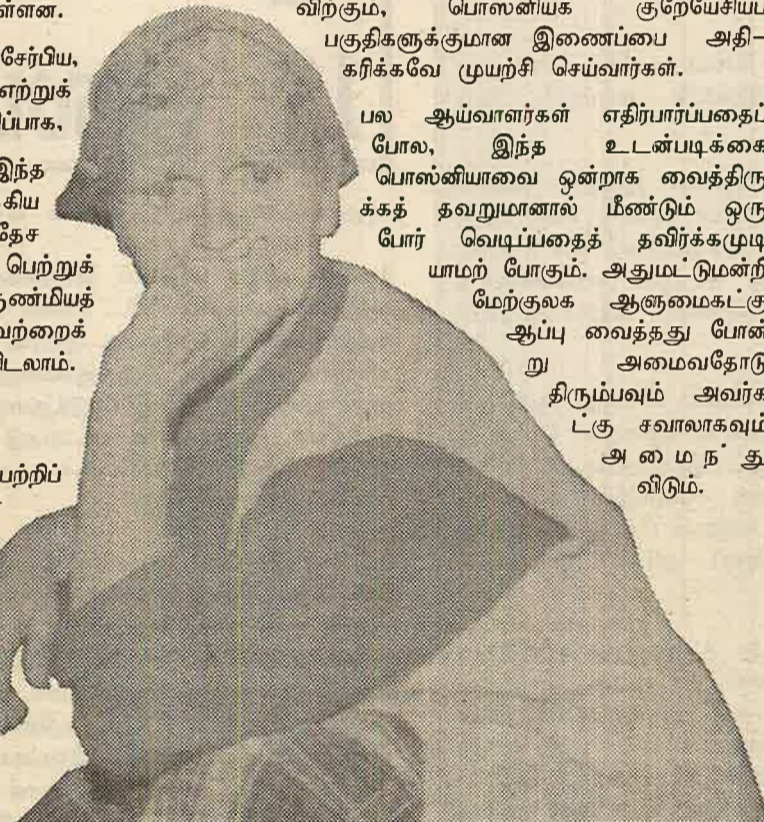 ள்ளன.
சேர்பிய,
எற்றுக்
ப்பாக,
இந்த
கிய
தேச
பெற்றுக்
ருண்மியத்
வற்றைக்
விடலாம்.
பற்றிப்
விற்கும், பொஸ்னியக் குறேயேசியப்
பகுதிகளுக்குமான இணைப்பை அதி-
கரிக்கவே முயற்சி செய்வார்கள்.
பல ஆய்வாளர்கள் எதிர்பார்ப்பதைப்
போல, இந்த உடன்படிக்கை
பொஸ்னியாவை ஒன்றாக வைத்திரு
க்கத் தவறுமானால் மீண்டும் ஒரு
போர் வெடிப்பதைத் தவிர்க்கமுடி
யாமற் போகும். அதுமட்டுமன்றி
மேற்குலக ஆளுமைகட்கு
ஆப்பு வைத்தது போன்
று அமைவதோடு
திரும்பவும் அவர்க
ட்கு சவாலாகவும்
அமைந்து
விடும்.